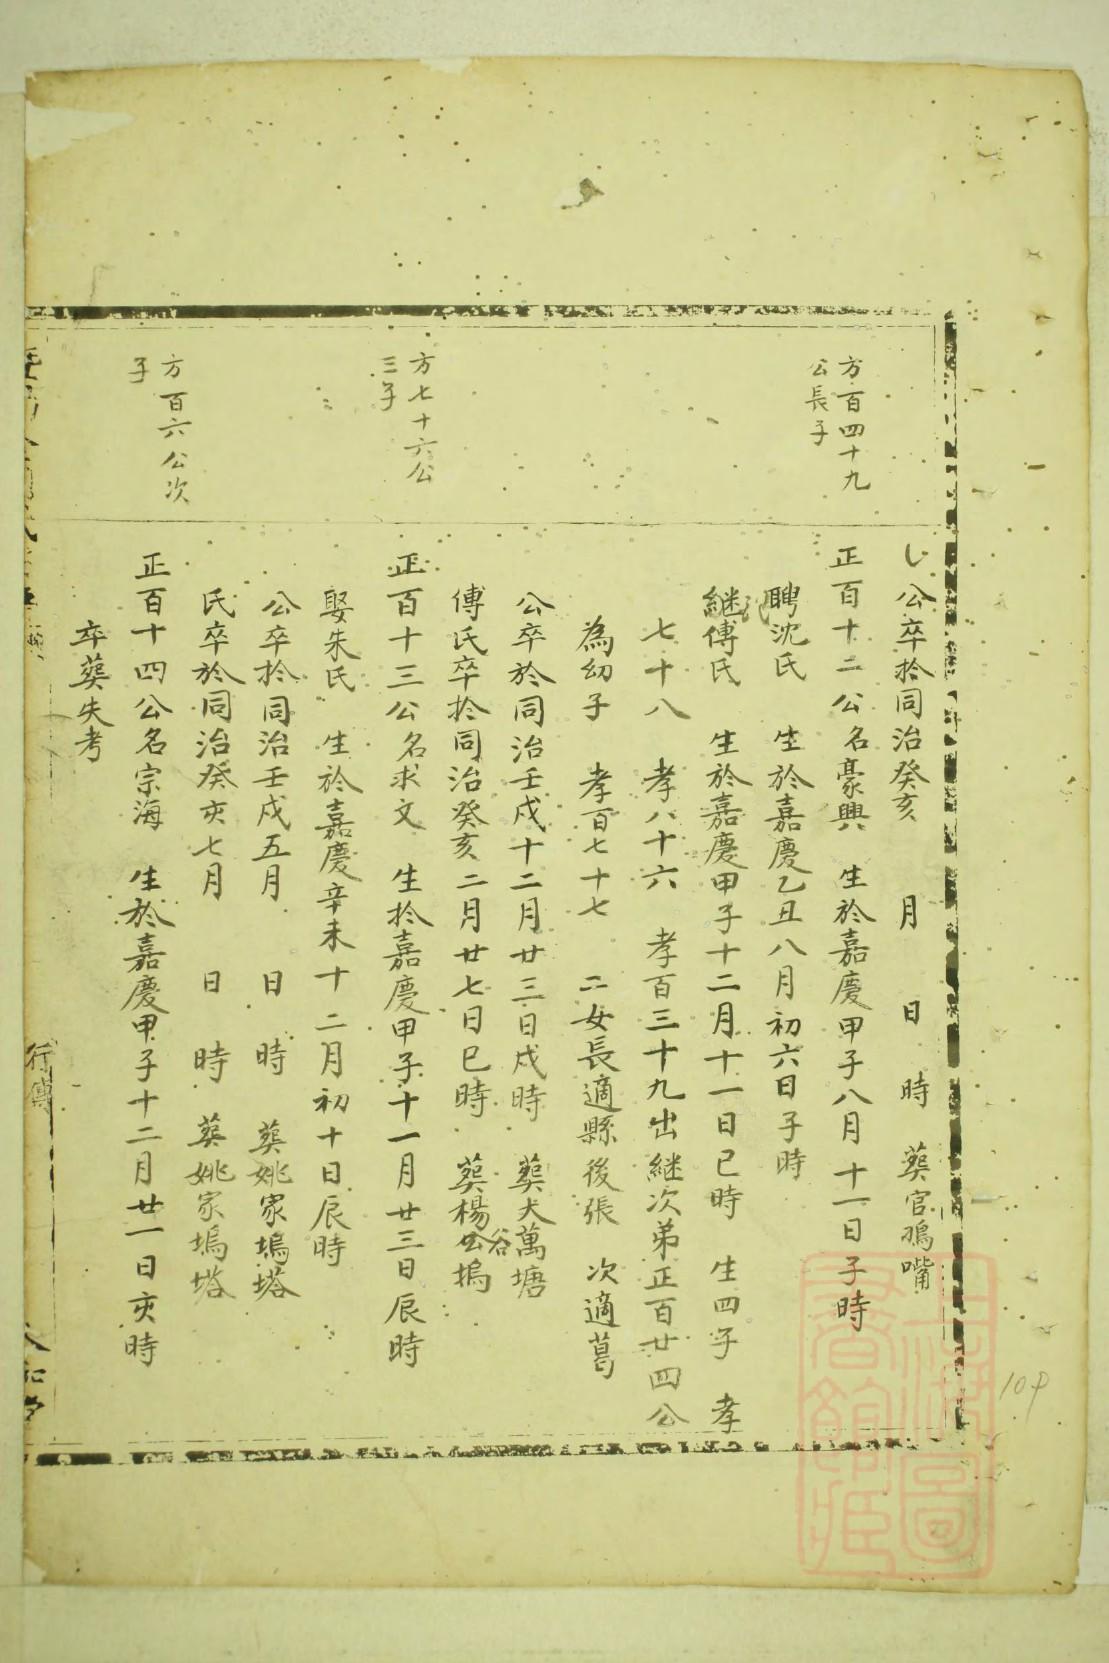 公卒於同治癸亥 月 日 時 葬官塢嘴
方百四十九
公長子
正百十二公名豪興 生於嘉慶甲子八月十一日子時
聘沈氏 生於嘉慶乙丑八月初六日子時
継傅氏 生於嘉慶甲子十二月十一日巳時 生四子 孝
七十八 孝八十六 孝百三十九出継次弟正百廿四公
為幼子 孝百七十七 二女長適縣後張 次適葛
公卒於同治壬戍十二月廿三日戍時 葬大萬塘
傅氏卒於同治癸亥二月廿七日巳時 葬楊公塢
谷
方七十六公
三子
正百十三公名求文 生於嘉慶甲子十一月廿三日辰時
娶朱氏 生於嘉慶辛未十二月初十日辰時
公卒於同治壬戍五月 日 時 葬姚家塢塔
氏卒於同治癸亥七月 日 時 葬姚家塢塔
方百六公次
子
正百十四公名宗海 生於嘉慶甲子十二月廿一日亥時
卒葬失考
行傳
上海圖書館藏